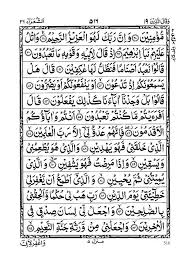 وَقَالَ الَّذِينَ ١٩ ٥١٦ الشُّعَرَآء ٢٦
مُّؤْمِنِيْنَ ۝ وَاِنَّ رَبَّكَ لَهُوَ الْعَزِيْزُ الرَّحِيْمُ ۝ وَاتْلُ
عَلَيْهِمْ نَبَاَ اِبْرٰهِيْمَ ۝ اِذْ قَالَ لِاَبِيْهِ وَقَوْمِهٖ مَا تَعْبُدُوْنَ ۝
قَالُوْا نَعْبُدُ اَصْنَامًا فَنَظَلُّ لَهَا عٰكِفِيْنَ ۝ قَالَ هَلْ
يَسْمَعُوْنَكُمْ اِذْ تَدْعُوْنَ ۝ اَوْ يَنْفَعُوْنَكُمْ اَوْ يَضُرُّوْنَ ۝
قَالُوْا بَلْ وَجَدْنَاۤ اٰبَآءَنَا كَذٰلِكَ يَفْعَلُوْنَ ۝ قَالَ
اَفَرَءَيْتُمْ مَّا كُنْتُمْ تَعْبُدُوْنَ ۝ اَنْتُمْ وَاٰبَآؤُكُمُ
الْاَقْدَمُوْنَ ۝ فَاِنَّهُمْ عَدُوٌّ لِّيْۤ اِلَّا رَبَّ الْعٰلَمِيْنَ ۝
الَّذِيْ خَلَقَنِيْ فَهُوَ يَهْدِيْنِ ۝ وَالَّذِيْ هُوَ يُطْعِمُنِيْ
وَيَسْقِيْنِ ۝ وَاِذَا مَرِضْتُ فَهُوَ يَشْفِيْنِ ۝ وَالَّذِيْ
يُمِيْتُنِيْ ثُمَّ يُحْيِيْنِ ۝ وَالَّذِيْۤ اَطْمَعُ اَنْ يَّغْفِرَ لِيْ
خَطِيْٓئَتِيْ يَوْمَ الدِّيْنِ ۝ رَبِّ هَبْ لِيْ حُكْمًا وَّاَلْحِقْنِيْ
بِالصّٰلِحِيْنَ ۝ وَاجْعَلْ لِّيْ لِسَانَ صِدْقٍ فِي
الْاٰخِرِيْنَ ۝ وَاجْعَلْنِيْ مِنْ وَّرَثَةِ جَنَّةِ النَّعِيْمِ ۝
منزل ٥